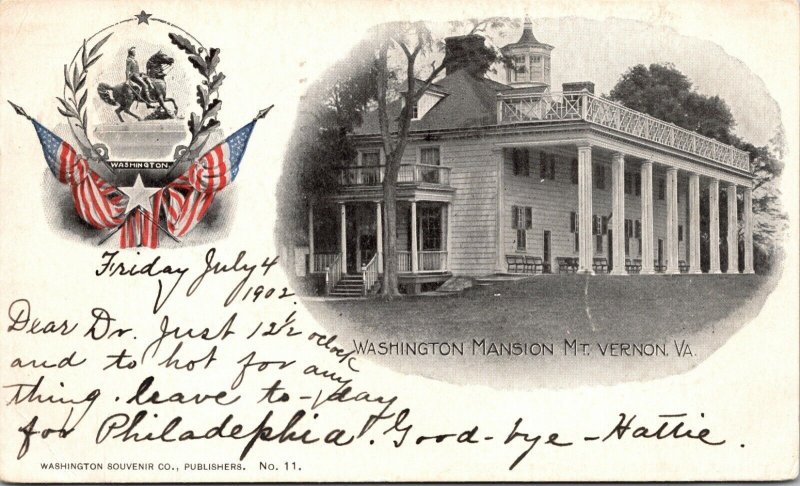 WASHINGTON
Friday July 4
1902.
Dear Dr. Just 12½ oclock
and to hot for any
thing. leave to-day
for Philadelphia. Good-bye - Hattie.
WASHINGTON MANSION MT. VERNON. VA.
WASHINGTON SOUVENIR CO., PUBLISHERS. No. 11.